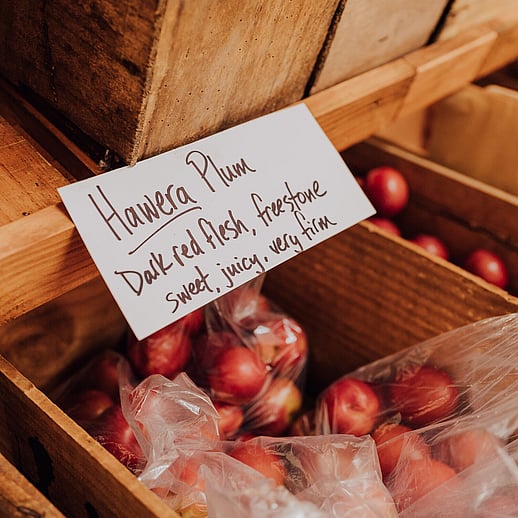 Hawera Plum
Dark red flesh, freestone
sweet, juicy, very firm